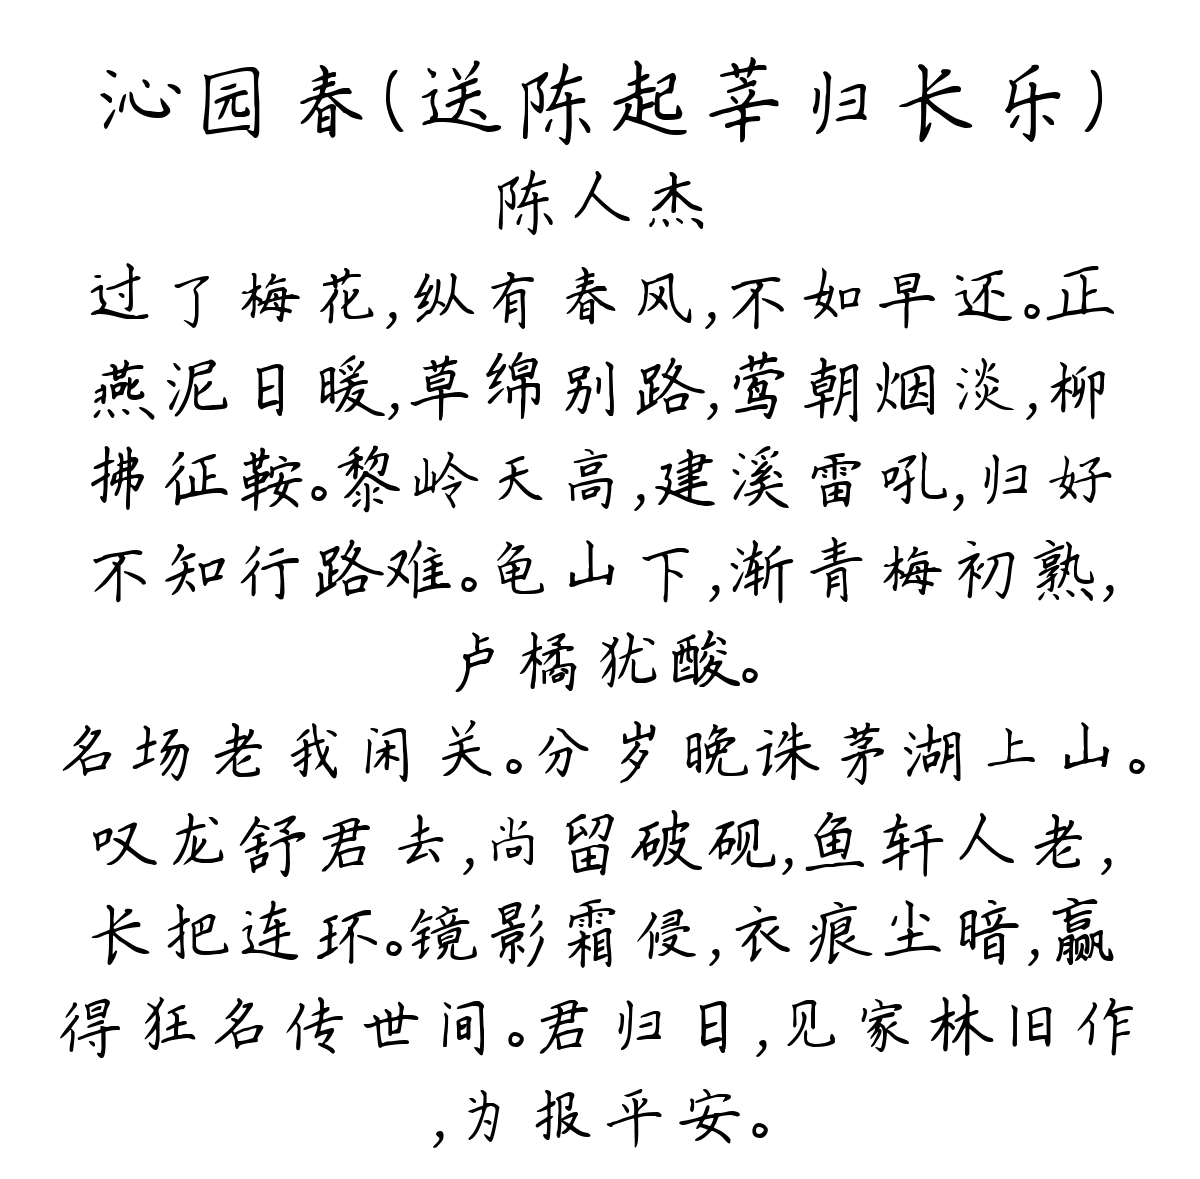 沁园春(送陈起莘归长乐)
陈人杰
过了梅花,纵有春风,不如早还。正
燕泥日暖,草绵别路,莺朝烟淡,柳
拂征鞍。黎岭天高,建溪雷吼,归好
不知行路难。龟山下,渐青梅初熟,
卢橘犹酸。
名场老我闲关。分岁晚诛茅湖上山。
叹龙舒君去,尚留破砚,鱼轩人老,
长把连环。镜影霜侵,衣痕尘暗,赢
得狂名传世间。君归日,见家林旧作
,为报平安。